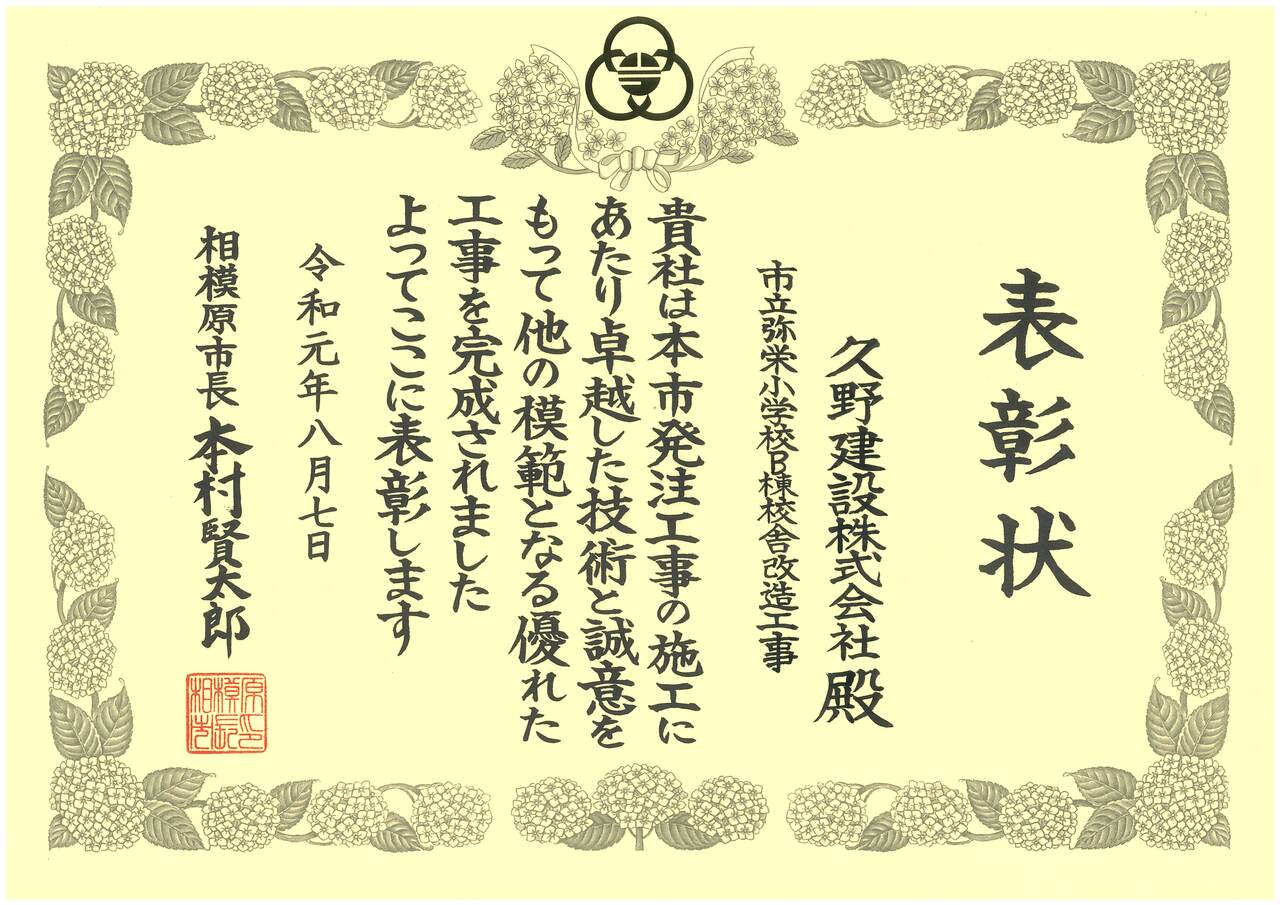 表彰状
久野建設株式会社殿
市立弥栄小学校B棟校舎改造工事
貴社は本市発注工事の施工に
あたり卓越した技術と誠意を
もって他の模範となる優れた
工事を完成されました
よってここに表彰します
令和元年八月七日
相模原市長 本村賢太郎
相模原市長印